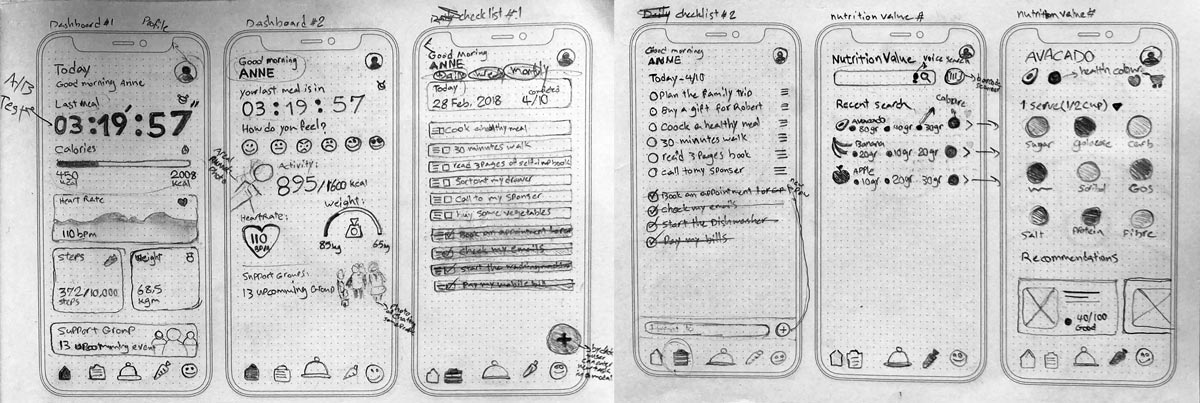 Dashboard #1
Profile
A/B
Today
Good morning Anne
Last Meal
03:19:57
Calories
450
kcal
2008
kcal
Heart Rate
110 bpm
Steps
372/10,000
steps
Weight
68.5
kgm
Support Group
13 upcoming event
Dashboard #2
Good morning
ANNE
your last meal is in
03:19:57
How do you feel?
Activity:
895/1600 kcal
Weight:
HeartRate:
110
BPM
85kg
65kg
Support Groups:
13 upcomming Group
Daily checklist #1
Good Morning
ANNE
Daily
weekly
monthly
Today
28 Feb, 2018
completed
4/10
Cook a healthy meal
30 minutes walk
read 3 pages of self-imp book
Sort out my drawer
Call to my sponser
buy some vegetables
Book an appointment for
Check my emails
Start the washing machine
Pay my mobile bill
Daily checklist #2
Good morning
ANNE
Today - 4/10
Plan the family trip
Buy a gift for Robert
Coock a healthy meal
30 minutes walk
read 3 pages book
call to my sponser
Book an appointment for
Check my emails
Start the Dishwasher
Pay my bills
nutrition value #
Nutrition Value
Voice search
barcode
scanner
Recent search
Calorie
Avocado
80gr
40gr
30gr
Banana
20gr
10gr
20gr
Apple
10gr
20gr
30gr
nutrition value #
AVACADO
health colour
1 serve (1/2 cup)
Sugar
galocose
Carb
Sorbitol
GOS
Salt
Protein
Fibre
Recommendations
40/100
Good